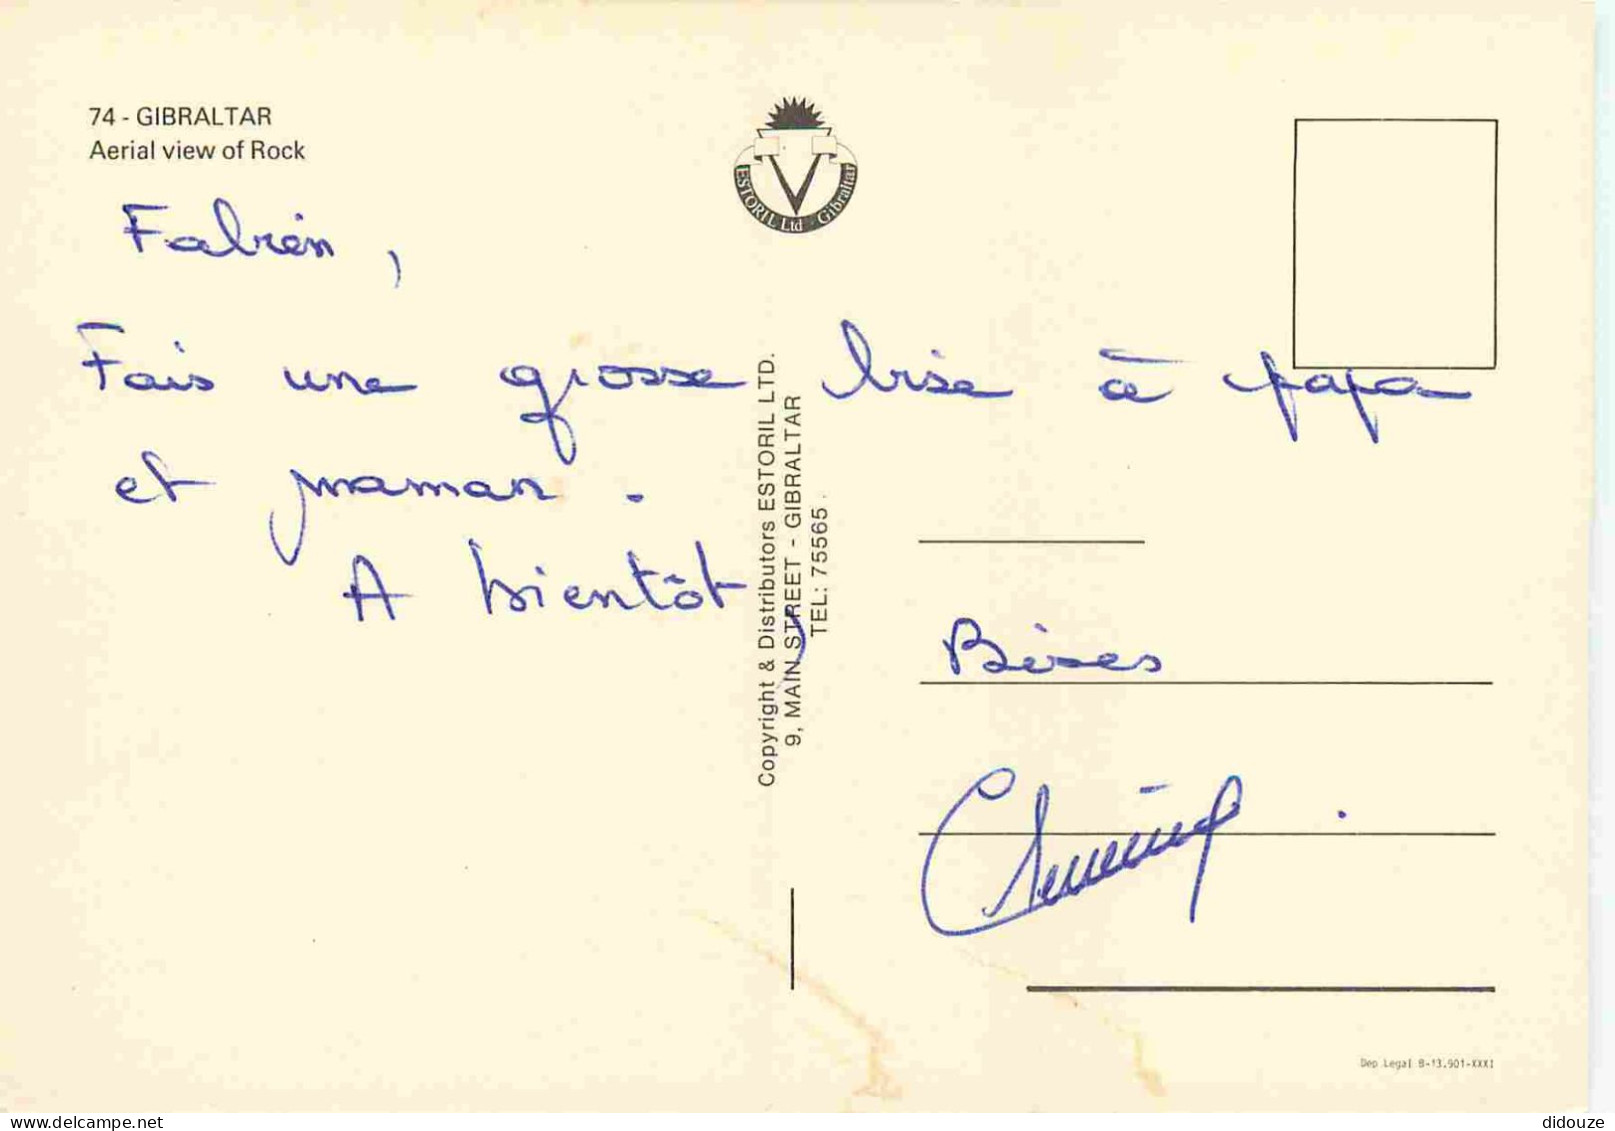 74 - GIBRALTAR
Aerial view of Rock
ESTORIL Ltd Gibraltar
Fabien,
Fais une grosse bise à papa
et maman.
A bientôt,
Bises
Copyright & Distributors ESTORIL LTD.
9, MAIN STREET - GIBRALTAR
TEL: 75565.
Dep Legal B-13.901-XXXI
didouze